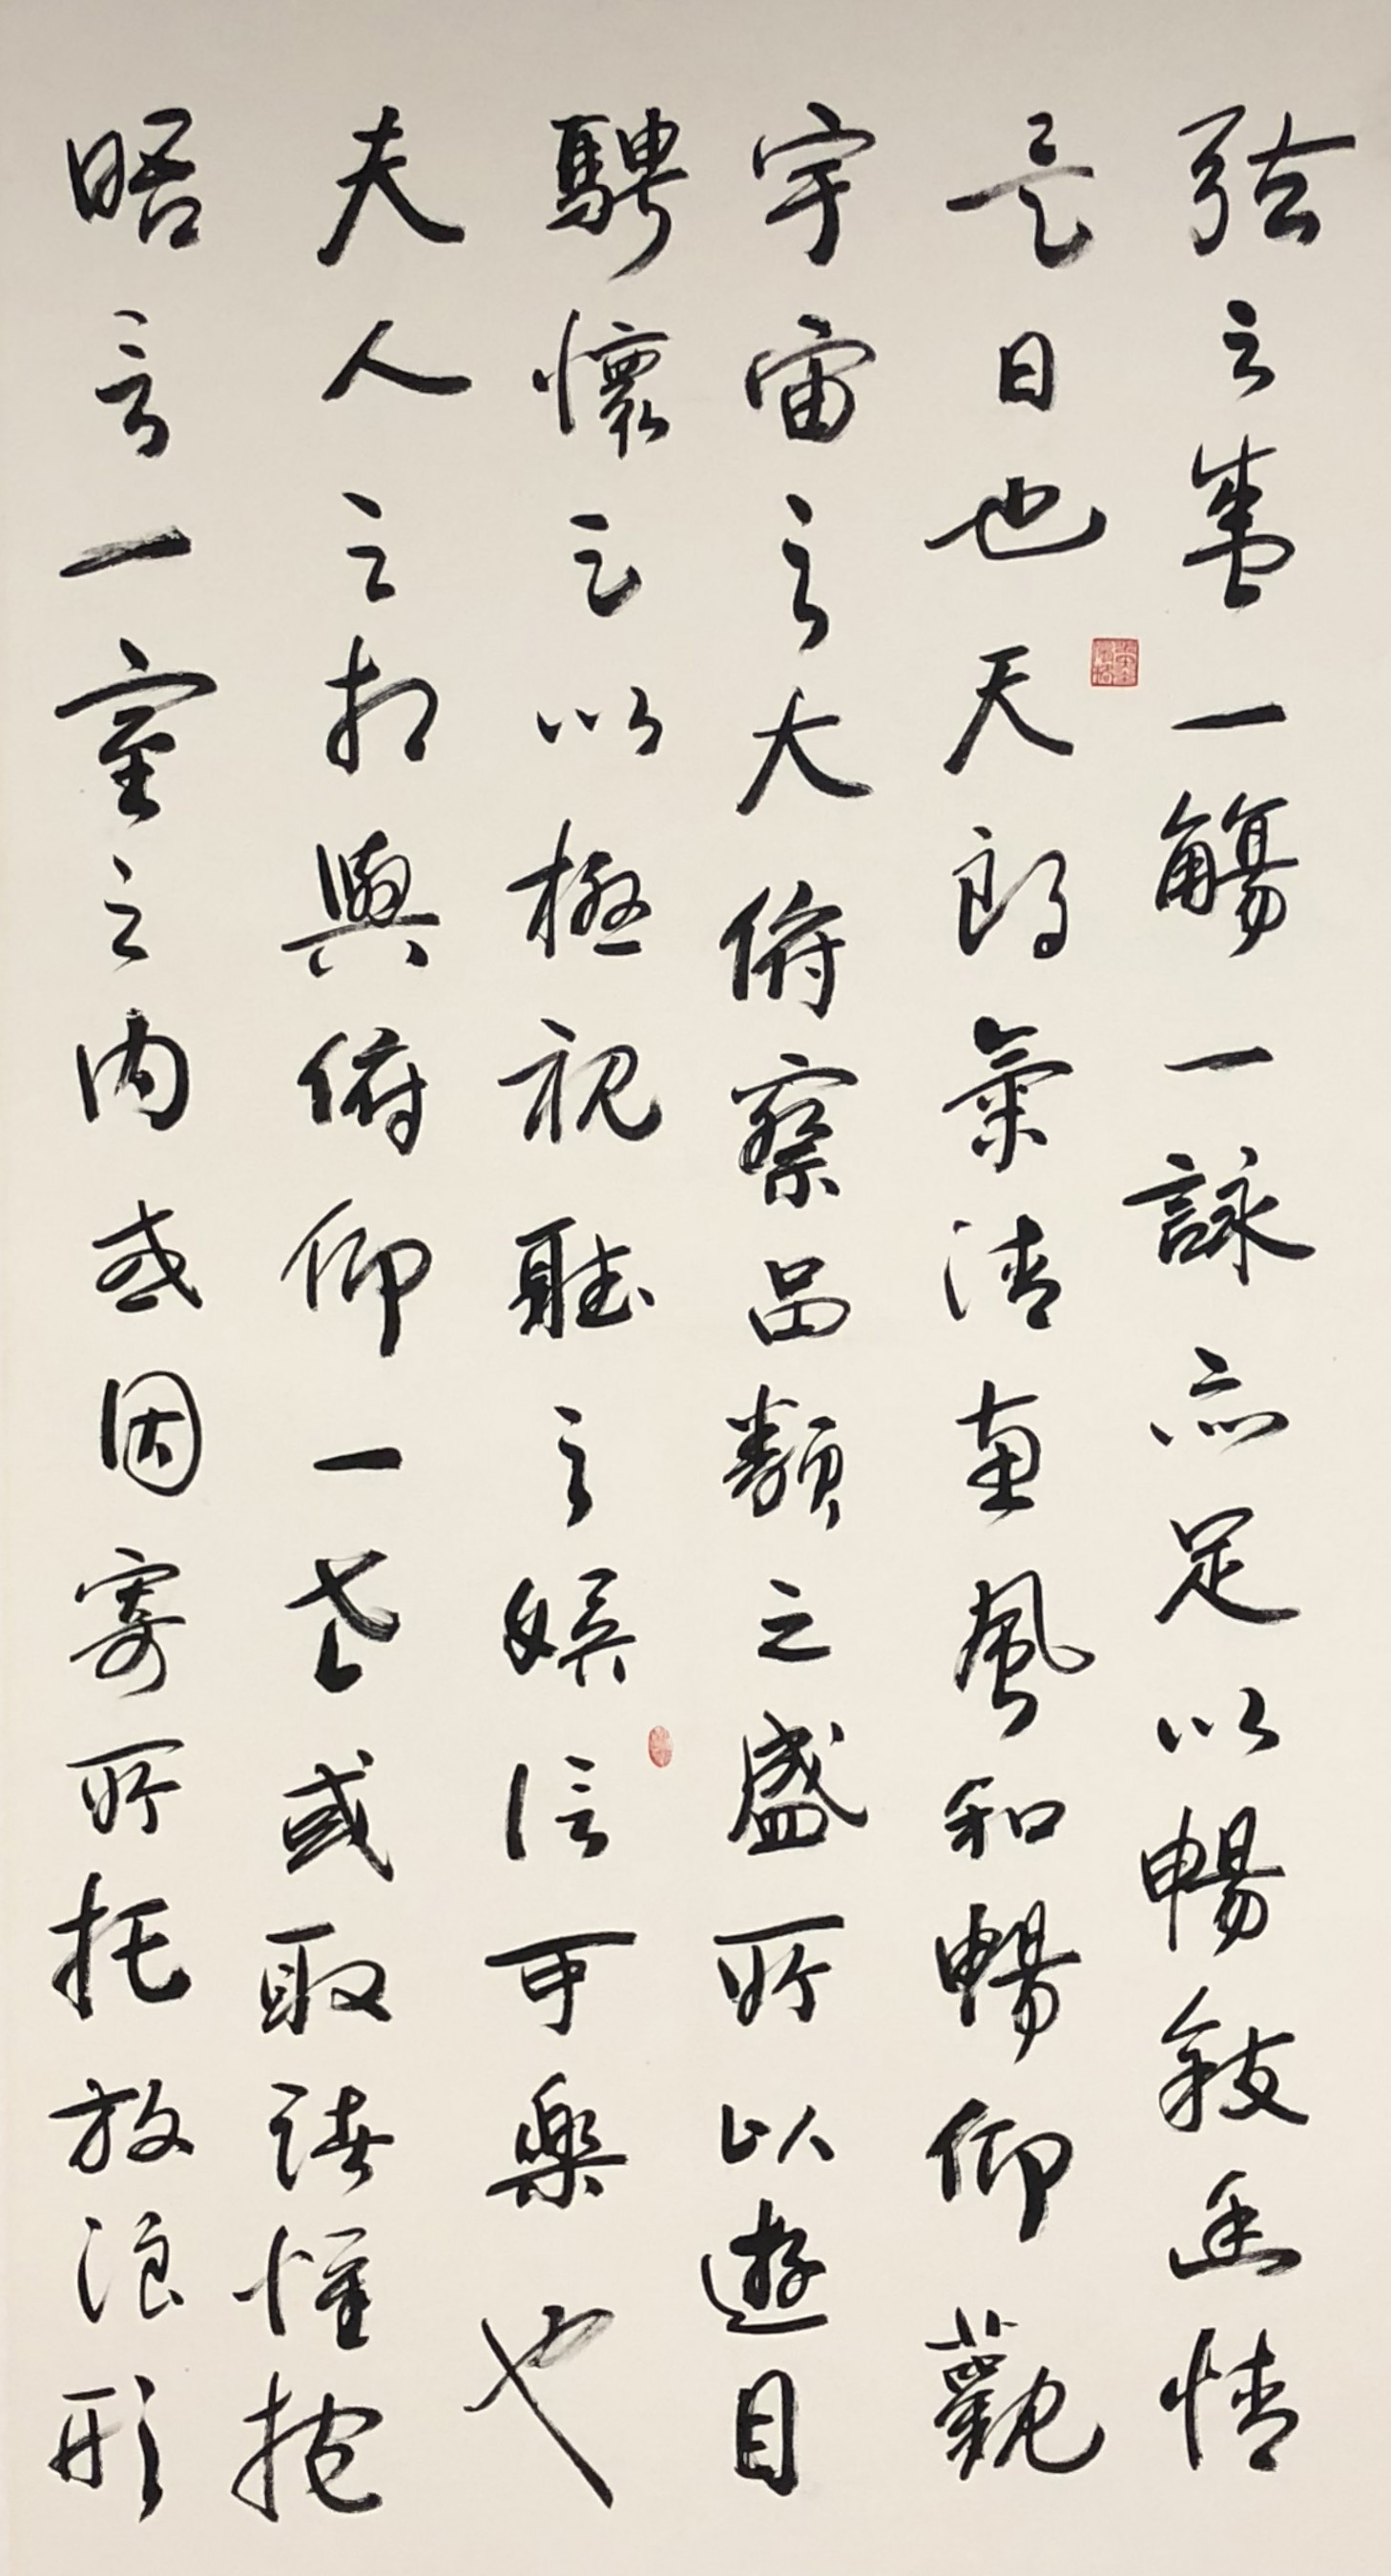 弦之盛一觴一詠亦足以暢敘幽情
是日也天朗氣清惠風和暢仰觀
宇宙之大俯察品類之盛所以遊目
騁懷足以極視聽之娛信可樂也
夫人之相與俯仰一世或取諸懷抱
晤言一室之內或因寄所托放浪形